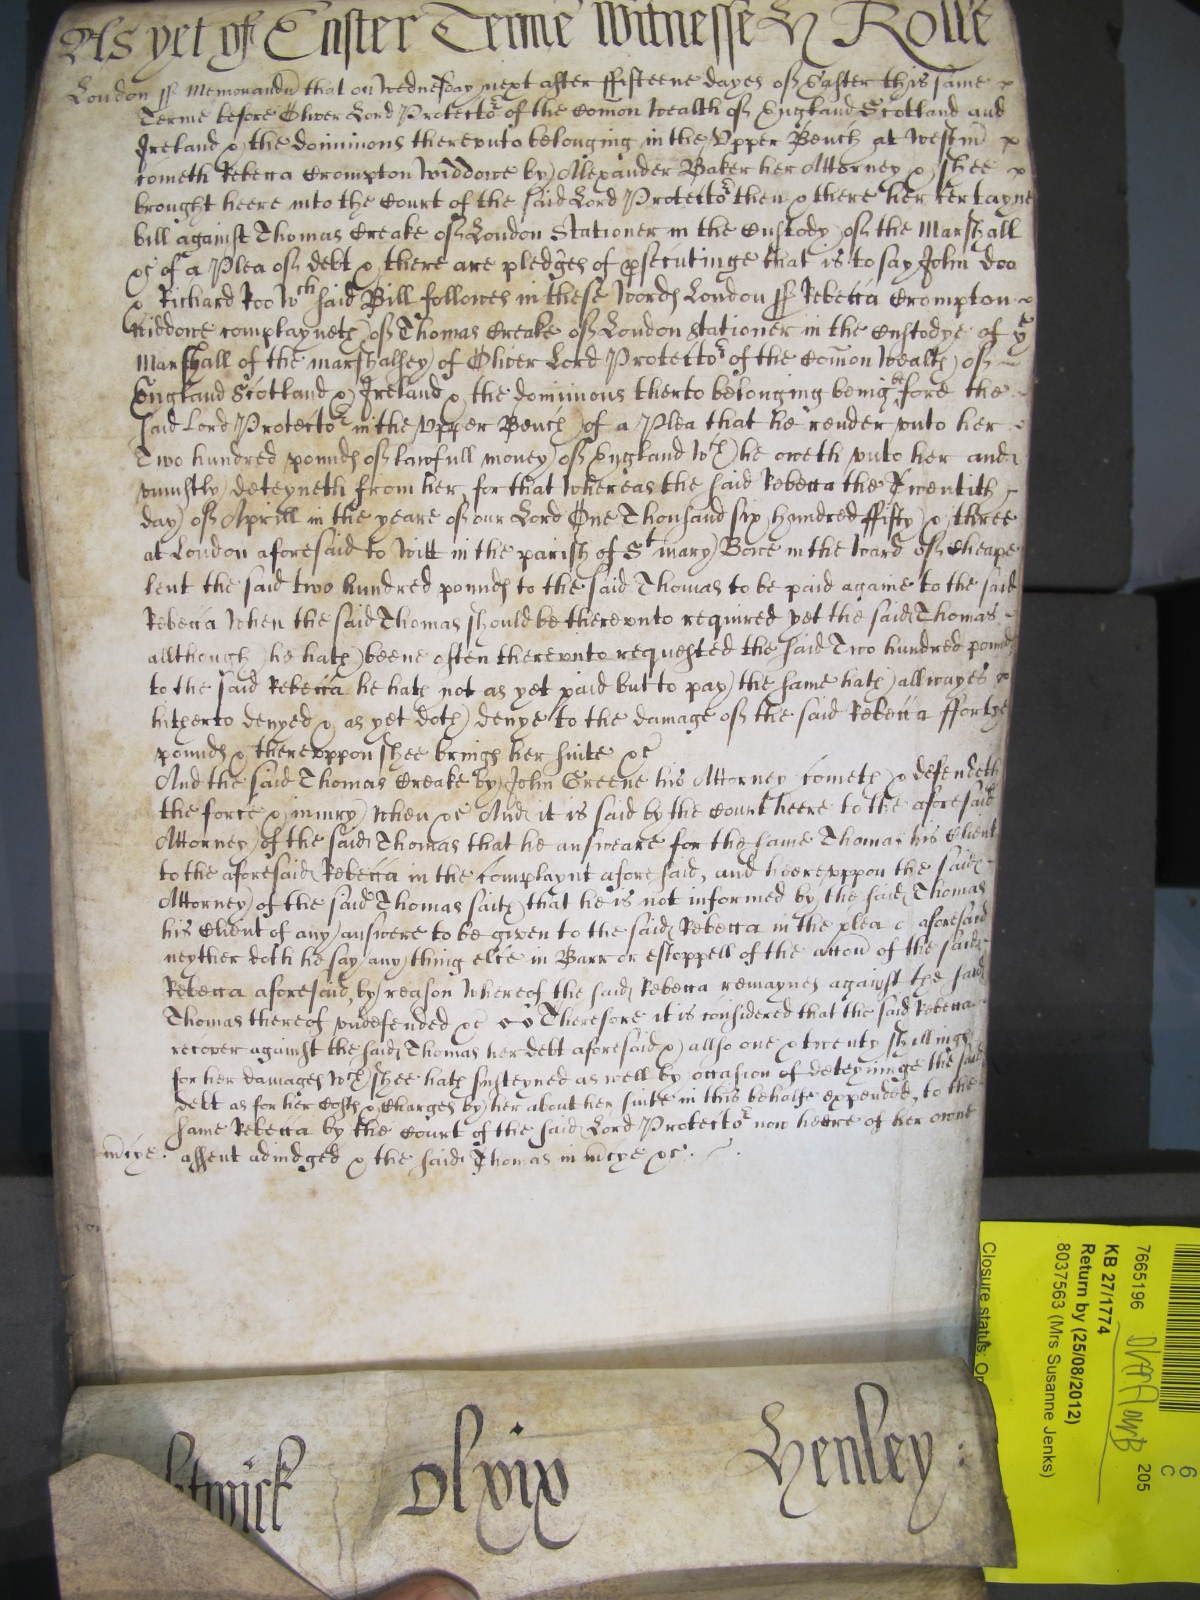 As yet of Easter Terme Witnesse H Rolle
London ss Memorandu that on Wednesday next after ffifteene dayes of Easter this same
Terme before Oliver Lord Protector of the Comon Wealth of England Scotland and
Ireland & the dominions thereunto belonging in the Upper Bench at Westm
cometh Rebecca Crompton Widdowe by Alexander Baker her Attorney & shee
brought heere into the Court of the said Lord Protector then & there her certayne
bill against Thomas Creake of London Stationer in the Custody of the Marshall
&c of a Plea of debt & there are pledges of psecutinge that is to say John Doo
& Richard Roo Wch said Bill followes in these Words London ss Rebecca Crompton
Widdowe complayneth of Thomas Creake of London Stationer in the Custodye of ye
Marshall of the marshalsey of Oliver Lord Protector of the Comon Wealth of
England Scotland & Ireland & the dominions therto belonging being before the
said Lord Protector in the Upper Bench of a Plea that he render unto her
Two hundred pounds of lawfull money of England Wch he oweth unto her and
uniustly deteyneth from her, for that whereas the said Rebecca the Twentith
day of Aprill in the yeare of our Lord One Thousand six hundred ffifty & three
at London aforesaid to Witt in the parish of St mary Bowe in the Ward of Cheape
lent the said two hundred pounds to the said Thomas to be paid againe to the said
Rebecca When the said Thomas should be thereunto required yet the said Thomas
allthough he hath beene often thereunto requested the said Two hundred pounds
to the said Rebecca he hath not as yet paid but to pay the same hath allwayes
hitherto denyed & as yet doth denye to the damage of the said Rebecca ffortye
pounds & thereuppon shee brings her suite &c
And the said Thomas Creake by John Greene his Attorney cometh & defendeth
the force & iniury When &c And it is said by the Court heere to the aforesaid
Attorney of the said Thomas that he answeare for the same Thomas his Client
to the aforesaid Rebecca in the complaynt afore said, and heereuppon the said
Attorney of the said Thomas saith that he is not informed by the said Thomas
his Client of any answere to be given to the said Rebecca in the plea aforesaid
neyther doth he say any thing else in Barr or estoppell of the accon of the said
Rebecca aforesaid, by reason Whereof the said Rebecca remaynes against the said
Thomas thereof undefended &c Therefore it is considered that the said Rebecca
recover against the said Thomas her debt aforesaid & allso one & twenty shillings
for her damages Wch shee hath susteyned as well by occasion of deteyninge the said
debt as for her Costs & Charges by her about her suite in this behalfe expended, to the
same Rebecca by the Court of the said Lord Protector now heere of her owne
mcye. assent adiudged & the said Thomas in mcye &c.
Olxix Henley
7665196
KB 27/1774
Return by (25/08/2012)
8037563 (Mrs Susanne Jenks)
Closure status: Op
205
6
C